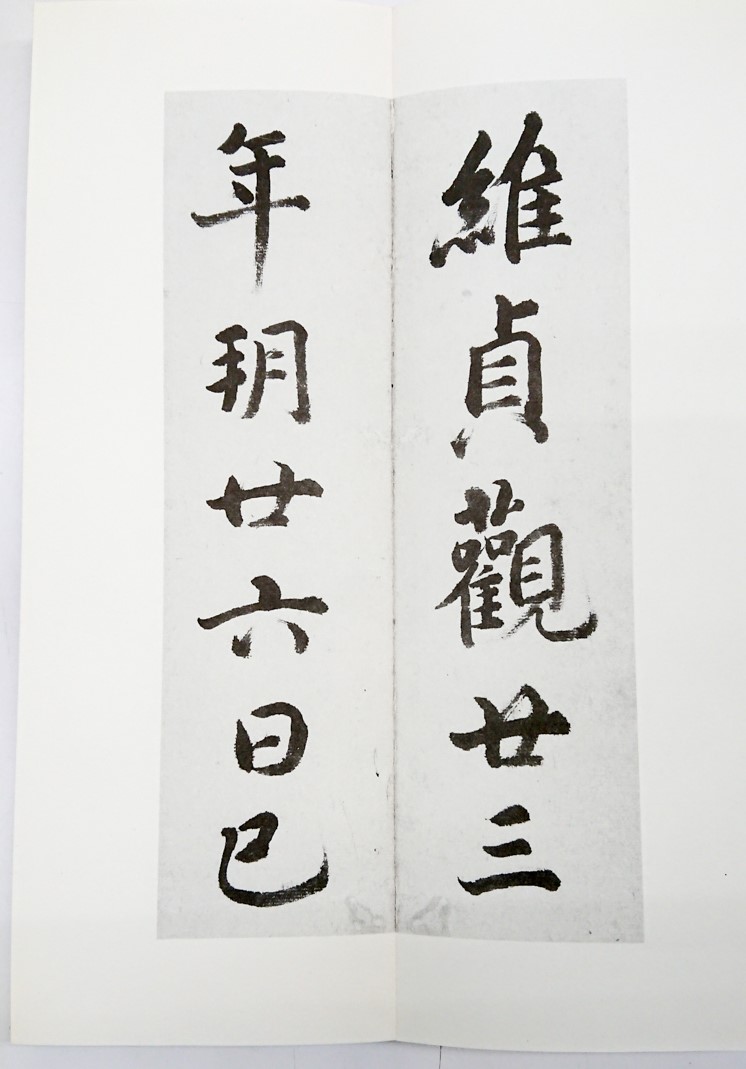 維貞觀廿三
年朔廿六日巳